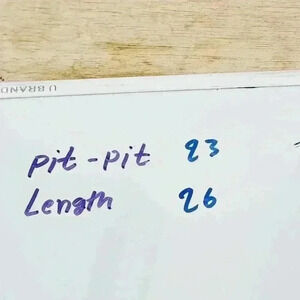 U BRAND
pit-pit 23
Length 26